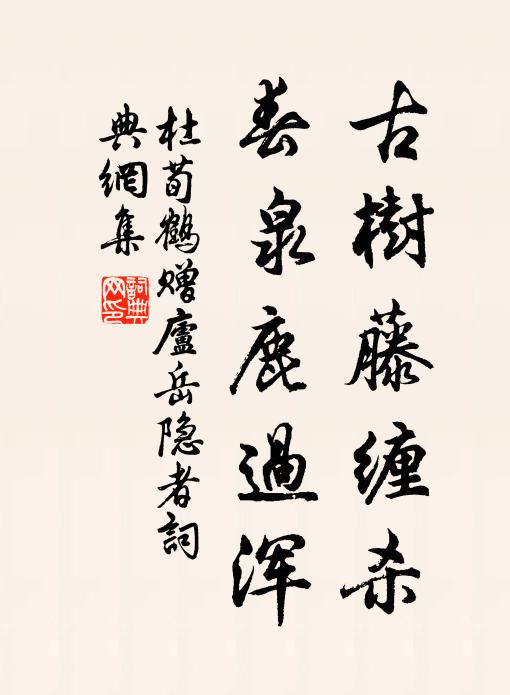 古樹藤缠杀
春泉鹿過浑
杜荀鶴赠廬岳隐者詞
典網集
詞典网印